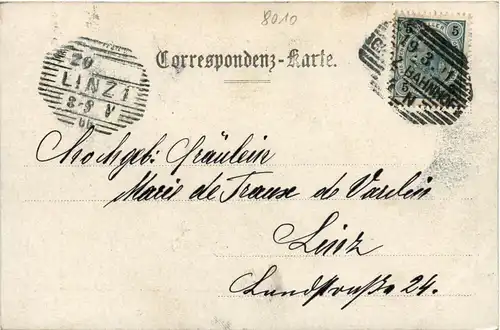 8010
Correspondenz-Karte.
5 5
20
LINZ 1
8-9 V
BAHNHOF
Hochgeb: Fräulein
Marie de Traux de Vardin
Linz
Landstraße 24.